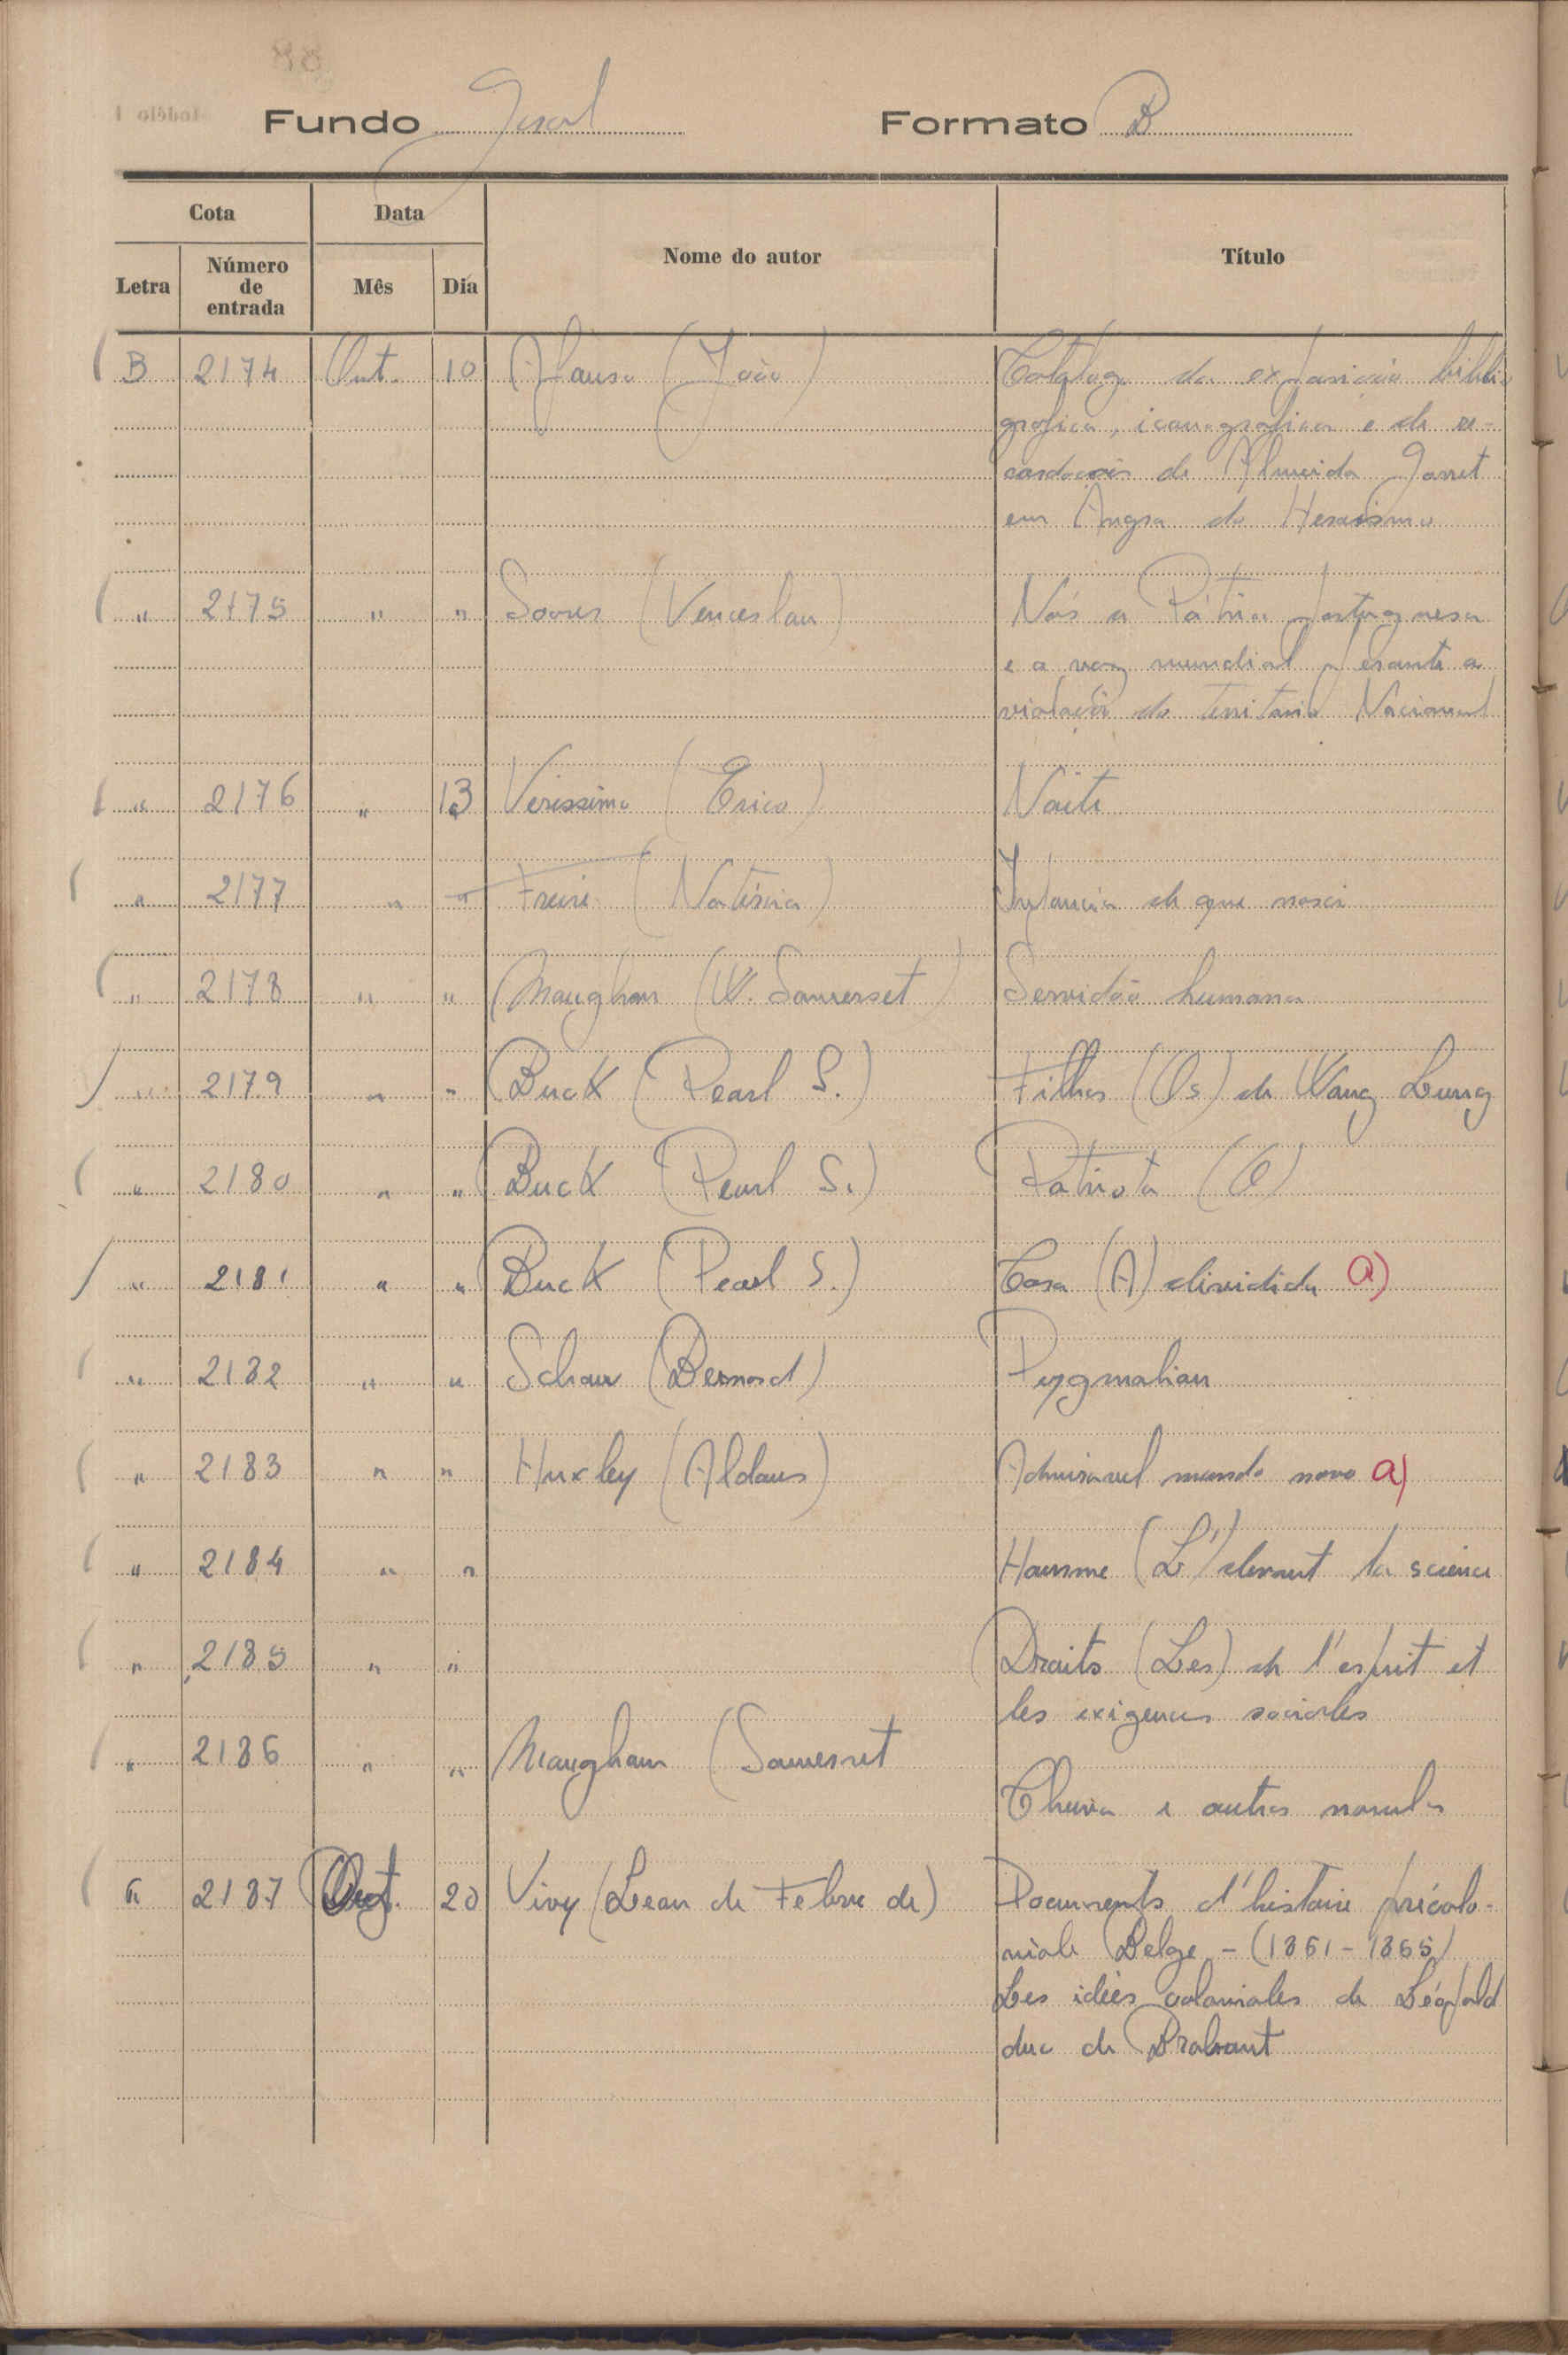 Fundo Geral Formato B
Cota Data Nome do autor Título
Letra Número de entrada Mês Dia
B 2174 Out. 10 Afonso (João) Catalogo da exposição biblio
grafica, iconografica e de re-
cordações de Almeida Garret
em Angra do Heroismo
" 2175 " " Soares (Venceslau) Nós a Pátria portuguesa
e a voz mundial perante a
violação do território Nacional
" 2176 " 13 Verissimo (Erico) Noite
" 2177 " " Freire (Natércia) Infancia de que nasci
" 2178 " " Maugham (W. Somerset) Servidão humana
" 2179 " " Buck (Pearl S.) Filhos (Os) de Wang Lung
" 2180 " " Buck (Pearl S.) Patriota (O)
" 2181 " " Buck (Pearl S.) Casa (A) dividida a)
" 2182 " " Schaw (Bernard) Pygmalion
" 2183 " " Huxley (Aldous) Admiravel mundo novo a)
" 2184 " " Homme (L') devant la science
" 2185 " " Droits (Les) de l'esprit et
les exigences sociales
" 2186 " " Maugham (Somerset
Chuva e outras novelas
" 2187 Out. 20 Vivy (Leon de Febvre de) Documents d'histoire précolo-
niale Belge - (1861 - 1865)
Les idées coloniales de Léopold
duc de Brabant